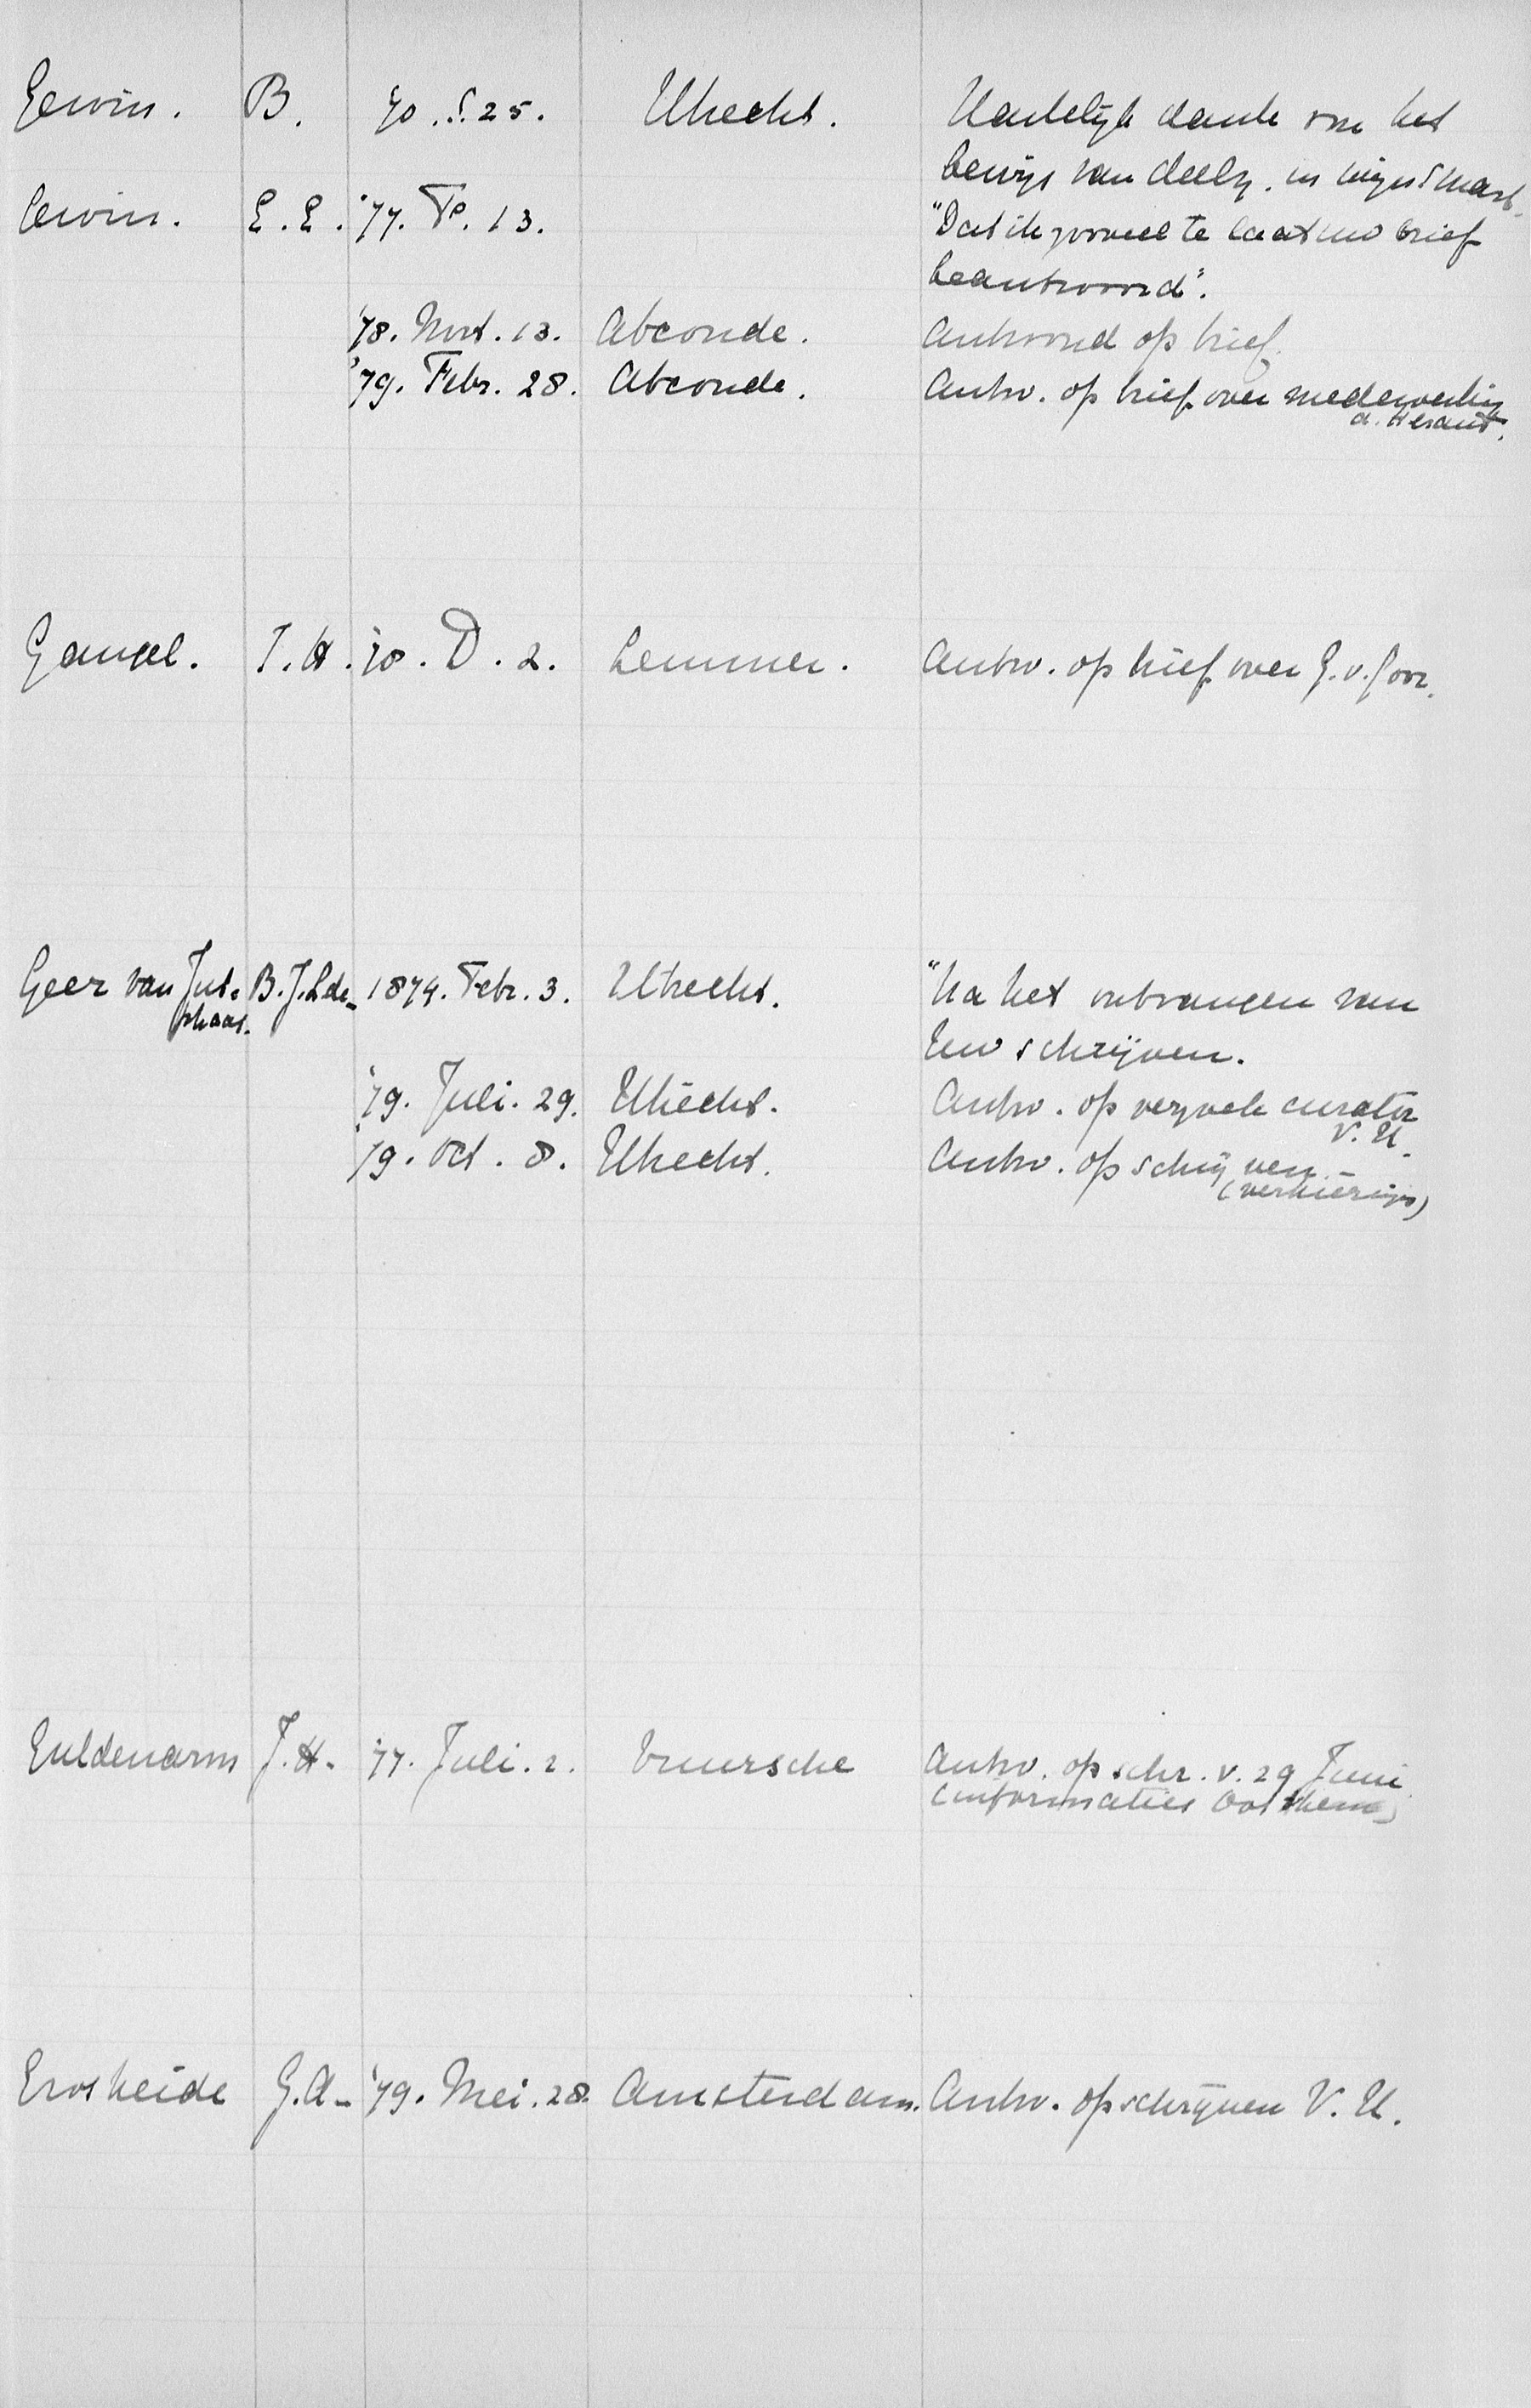 Gewin. B. '70. S. 25. Utrecht. Hartelijk dank voor het
bewijs van deeln. in mijn smart.
Gewin. E. E. '77. F. 13. "Dat ik zooveel te laat uw brief
beantwoord".
'78. Novt. 13. Abcoude. Antwoord op brief.
'79. Febr. 28. Abcoude. Antw. op brief over medewerking
a. Heraut.
Gangel. T. H. '70. D. 2. Lemmer. Antw. op brief over G. v.
Geer van Jut- B. J. L. de - 1874. Febr. 3. Utrecht. "Na het ontvangen van
phaas. Uw schrijven.
'79. Juli. 29. Utrecht. Antw. op verzoek curator
V. U.
'79. Oct. 8. Utrecht. Antw. op schrijven
Guldenarm J. H. - '77. Juli. 2. Vuursche Antw. op schr. v. 29 Juni
(informaties
Grosheide G. A - '79. Mei. 28. Amsterdam. Antw. op schrijven V. U.